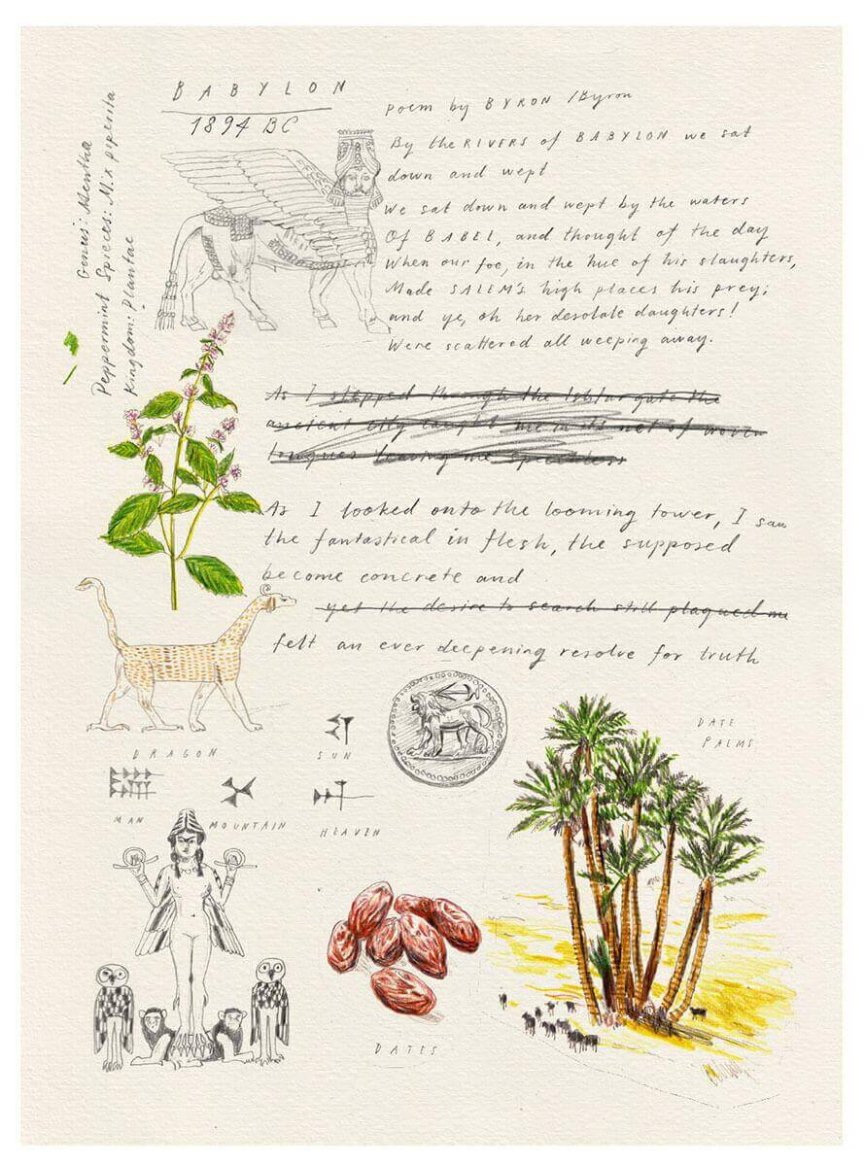 BABYLON
1894 BC
Genus: Mentha
Peppermint Spieces: M. x piperita
Kingdom: Plantae
Poem by BYRON / Byron
By the RIVERS of BABYLON we sat
down and wept
We sat down and wept by the waters
Of BABEL, and thought of the day
When our foe, in the hue of his slaughters,
Made SALEM'S high places his prey;
and ye, oh her desolate daughters!
Were scattered all weeping away.
As I stepped through the Ishtar gate the
ancient city caught me in its net of woven
tongues leaving me speechless
As I looked onto the looming tower, I saw
the fantastical in flesh, the supposed
become concrete and
yet the desire to search still plagued me
felt an ever deepening resolve for truth
DRAGON
SUN
MAN
MOUNTAIN
HEAVEN
DATE
PALMS
DATES